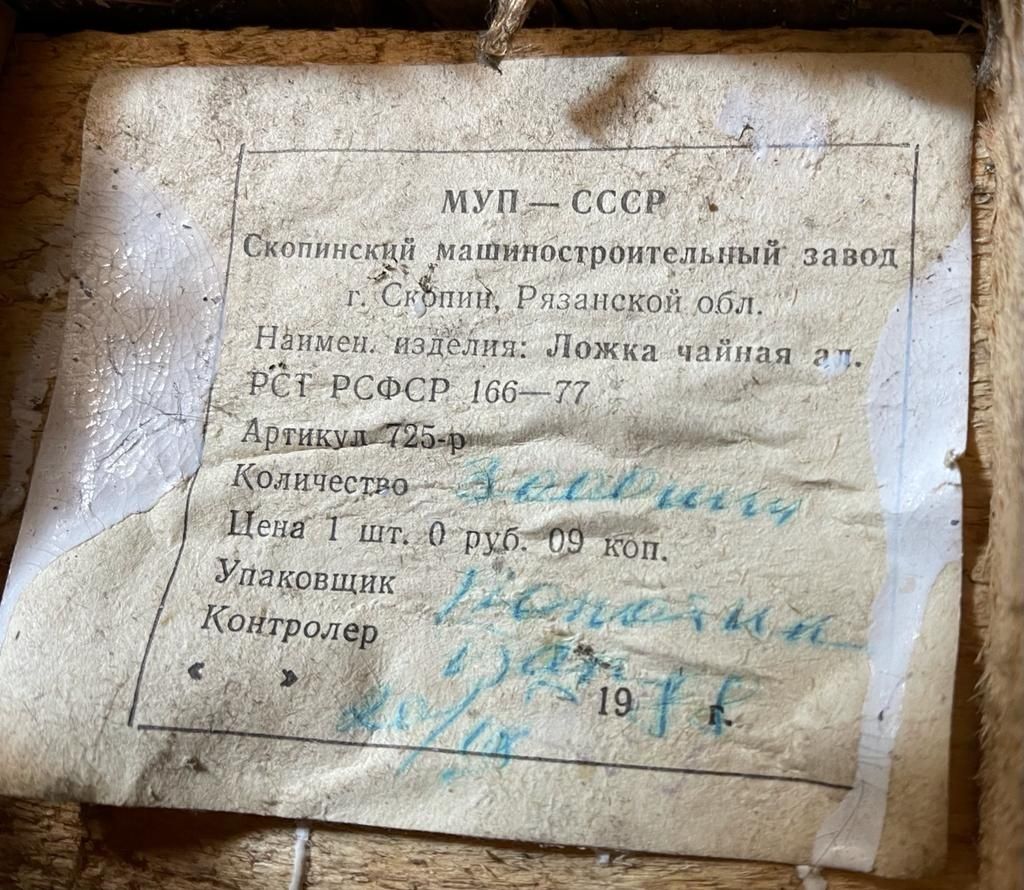 МУП — СССР
Скопинский машиностроительный завод
г. Скопин, Рязанской обл.
Наимен. изделия: Ложка чайная ал.
РСТ РСФСР 166—77
Артикул 725-р
Количество
Цена 1 шт. 0 руб. 09 коп.
Упаковщик
Контролер
« » 19 г.